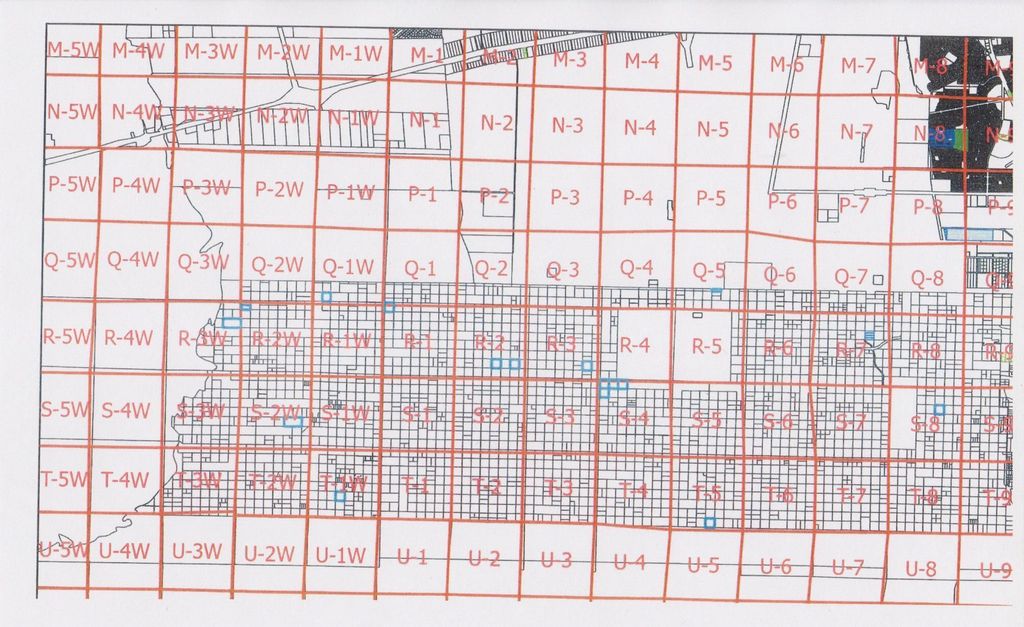 M-5W M-4W M-3W M-2W M-1W M-1 M-2 M-3 M-4 M-5 M-6 M-7 M-8
N-5W N-4W N-3W N-2W N-1W N-1 N-2 N-3 N-4 N-5 N-6 N-7 N-8
P-5W P-4W P-3W P-2W P-1W P-1 P-2 P-3 P-4 P-5 P-6 P-7 P-8 P-9
Q-5W Q-4W Q-3W Q-2W Q-1W Q-1 Q-2 Q-3 Q-4 Q-5 Q-6 Q-7 Q-8
R-5W R-4W R-3W R-2W R-1W R-1 R-2 R-3 R-4 R-5 R-6 R-7 R-8 R-9
S-5W S-4W S-3W S-2W S-1W S-1 S-2 S-3 S-4 S-5 S-6 S-7 S-8 S-9
T-5W T-4W T-3W T-2W T-1W T-1 T-2 T-3 T-4 T-5 T-6 T-7 T-8 T-9
U-5W U-4W U-3W U-2W U-1W U-1 U-2 U-3 U-4 U-5 U-6 U-7 U-8 U-9